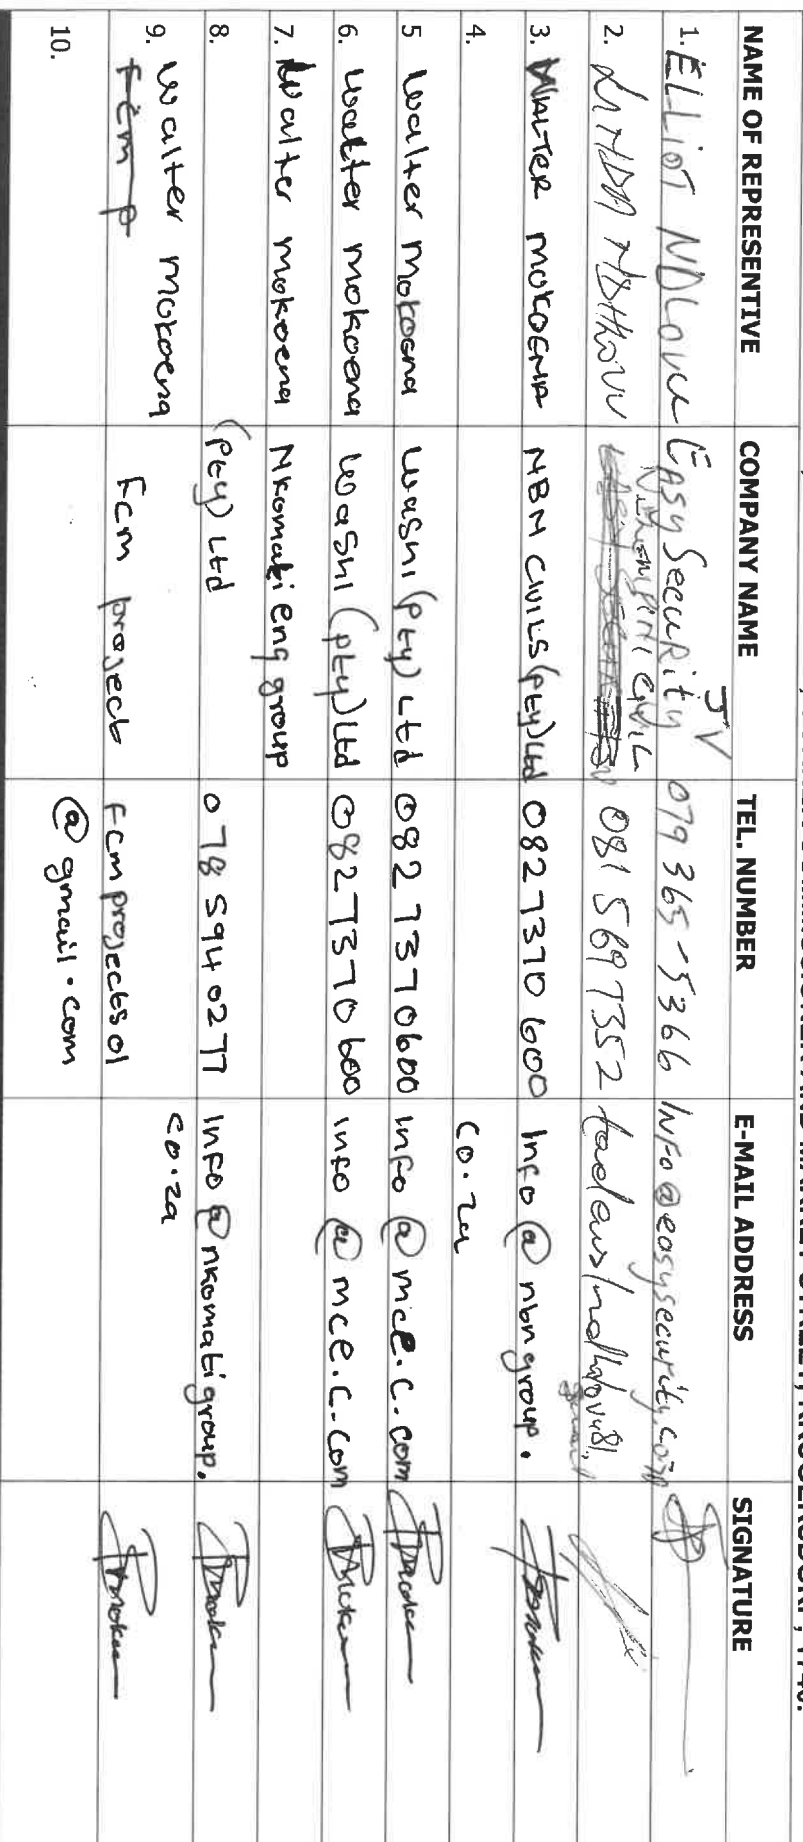 NAME OF REPRESENTIVE COMPANY NAME TEL. NUMBER E-MAIL ADDRESS SIGNATURE
1. ELLIOT NDLOVU EASY SECURITY JV 079 365-5366 INFO@easysecurity.coza
2. LINDA NDHLOVU CIVIL 081 569 7352
3. WALTER MOKOENA NBN CIVILS (Pty) Ltd 082 7370 600 Info @ nbngroup.
4. co.za
5 Walter Mokoena Washi (Pty) Ltd 082 7370600 info @ mce.c.com
6. Walter Mokoena Washi (Pty) Ltd 082 7370 600 info @ mce.c.com
7. Walter Mokoena Nkomati eng group
8. (Pty) Ltd 078 594 0277 Info @ nkomatigroup.
9. Walter Mokoena co.za
Fcm P Fcm project fcmprojects01
10. @gmail.com